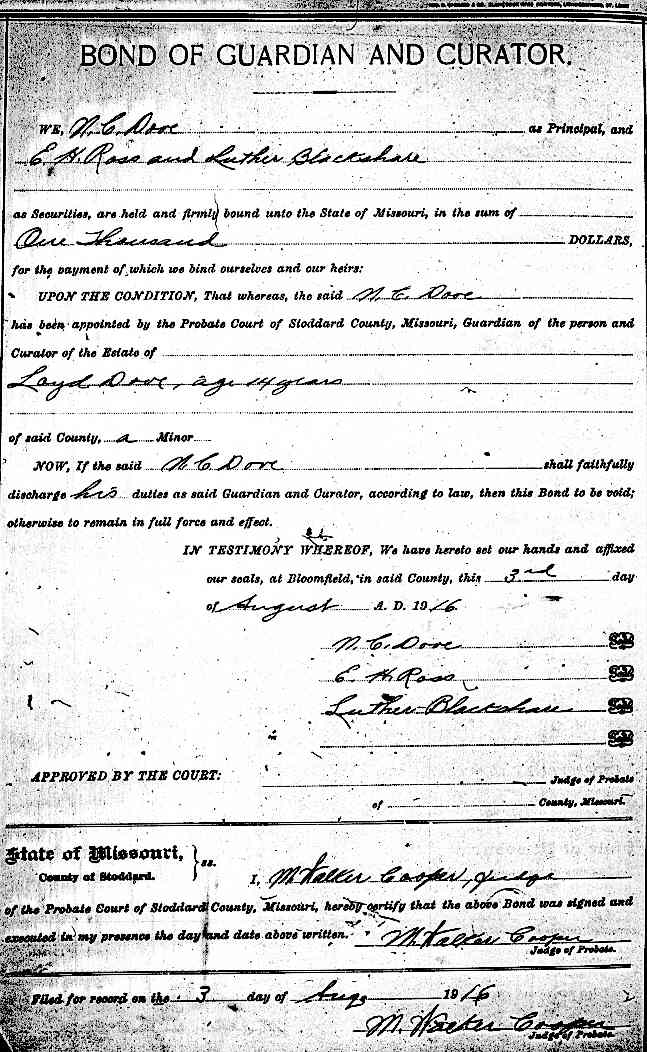 BOND OF GUARDIAN AND CURATOR.
WE, N. C. Dove as Principal, and
E. H. Ross and Luther Blackshare
as Securities, are held and firmly bound unto the State of Missouri, in the sum of
One Thousand DOLLARS,
for the payment of which we bind ourselves and our heirs:
UPON THE CONDITION, That whereas, the said N. C. Dove
has been appointed by the Probate Court of Stoddard County, Missouri, Guardian of the person and
Curator of the Estate of
Loyd Dove, age 14 years
of said County, a Minor
NOW, If the said N C Dove shall faithfully
discharge his duties as said Guardian and Curator, according to law, then this Bond to be void;
otherwise to remain in full force and effect.
IN TESTIMONY WHEREOF, We have hereto set our hands and affixed
our seals, at Bloomfield, in said County, this 3rd day
of August A. D. 1916.
N. C. Dove
E. H. Ross
Luther Blackshare
APPROVED BY THE COURT:
Judge of Probate
of County, Missouri.
State of Missouri, } ss.
County of Stoddard.
I, M Walker Cooper, Judge
of the Probate Court of Stoddard County, Missouri, hereby certify that the above Bond was signed and
executed in my presence the day and date above written. M. Walker Cooper
Judge of Probate.
Filed for record on the 3 day of Aug 1916
M. Walker Cooper
Judge of Probate.